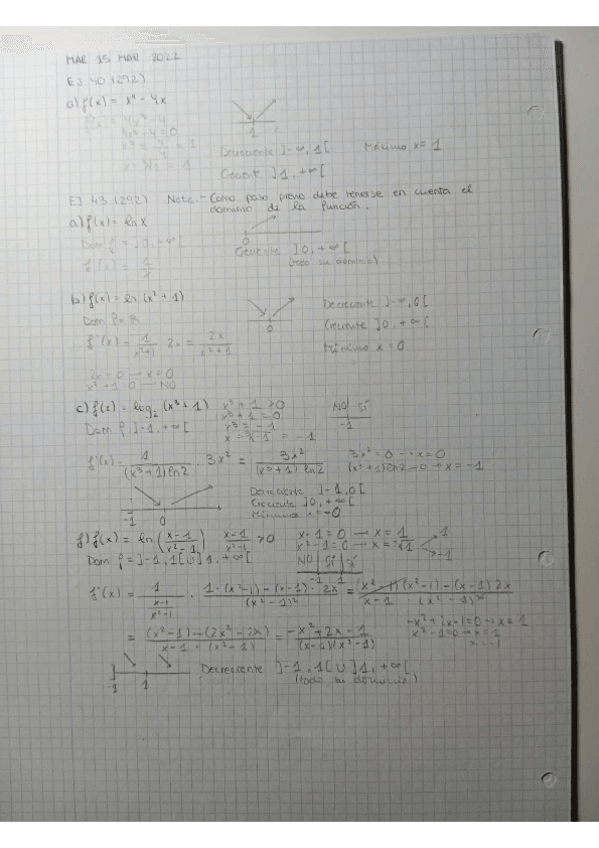 MAR 15 MAR 2022
EJ 40 (292)
a) f(x) = x⁴ - 4x
f'(x) = 4x³ - 4
4x³ - 4 = 0
x³ = 4/4 = 1
x = ∛1 = 1
1
Decreciente ]-∞, 1[ Máximo x = 1
Creciente ]1, +∞[
EJ 43 (292) Nota.- Como paso previo debe tenerse en cuenta el
dominio de la función.
a) f(x) = ln x
0
Dom f = ]0, +∞[
Creciente ]0, +∞[
(todo su dominio)
b) f(x) = ln (x² + 1)
0
Decreciente ]-∞, 0[
Dom f = R
Creciente ]0, +∞[
f'(x) = 1/(x²+1) · 2x = 2x/(x²+1)
Mínimo x = 0
2x = 0 → x = 0
x² + 1 = 0 → NO
c) f(x) = log₂ (x³ + 1) x³ + 1 > 0 NO | SÍ
x³ + 1 = 0 -1
Dom f ]-1, +∞[ x³ = -1
x = ∛-1 = -1
f'(x) = 1/((x³+1) ln2) · 3x² = 3x²/((x³+1) ln2) 3x² = 0 → x = 0
(x³+1) ln2 = 0 → x = -1
-1 0
Decreciente ]-1, 0[
Creciente ]0, +∞[
Mínimo x = 0
f) f(x) = ln((x-1)/(x²-1)) (x-1)/(x²-1) > 0 x - 1 = 0 → x = 1
x² - 1 = 0 → x = ±√1 1 -1
Dom f = ]-1, 1[ U ]1, +∞[ NO | SÍ | SÍ
-1 1
f'(x) = 1/((x-1)/(x²-1)) · (1·(x²-1) - (x-1)·2x)/(x²-1)² = (x²-1)/(x-1) · ((x²-1) - (x-1)2x)/(x²-1)²
= ((x²-1) - (2x²-2x))/(x-1 · (x²-1)) = (-x²+2x-1)/((x-1)(x²-1)) -x²+2x-1 = 0 → x = 1
x²-1 = 0 → x = 1
x = -1
-1 1
Decreciente ]-1, 1[ U ]1, +∞[
(todo su dominio)